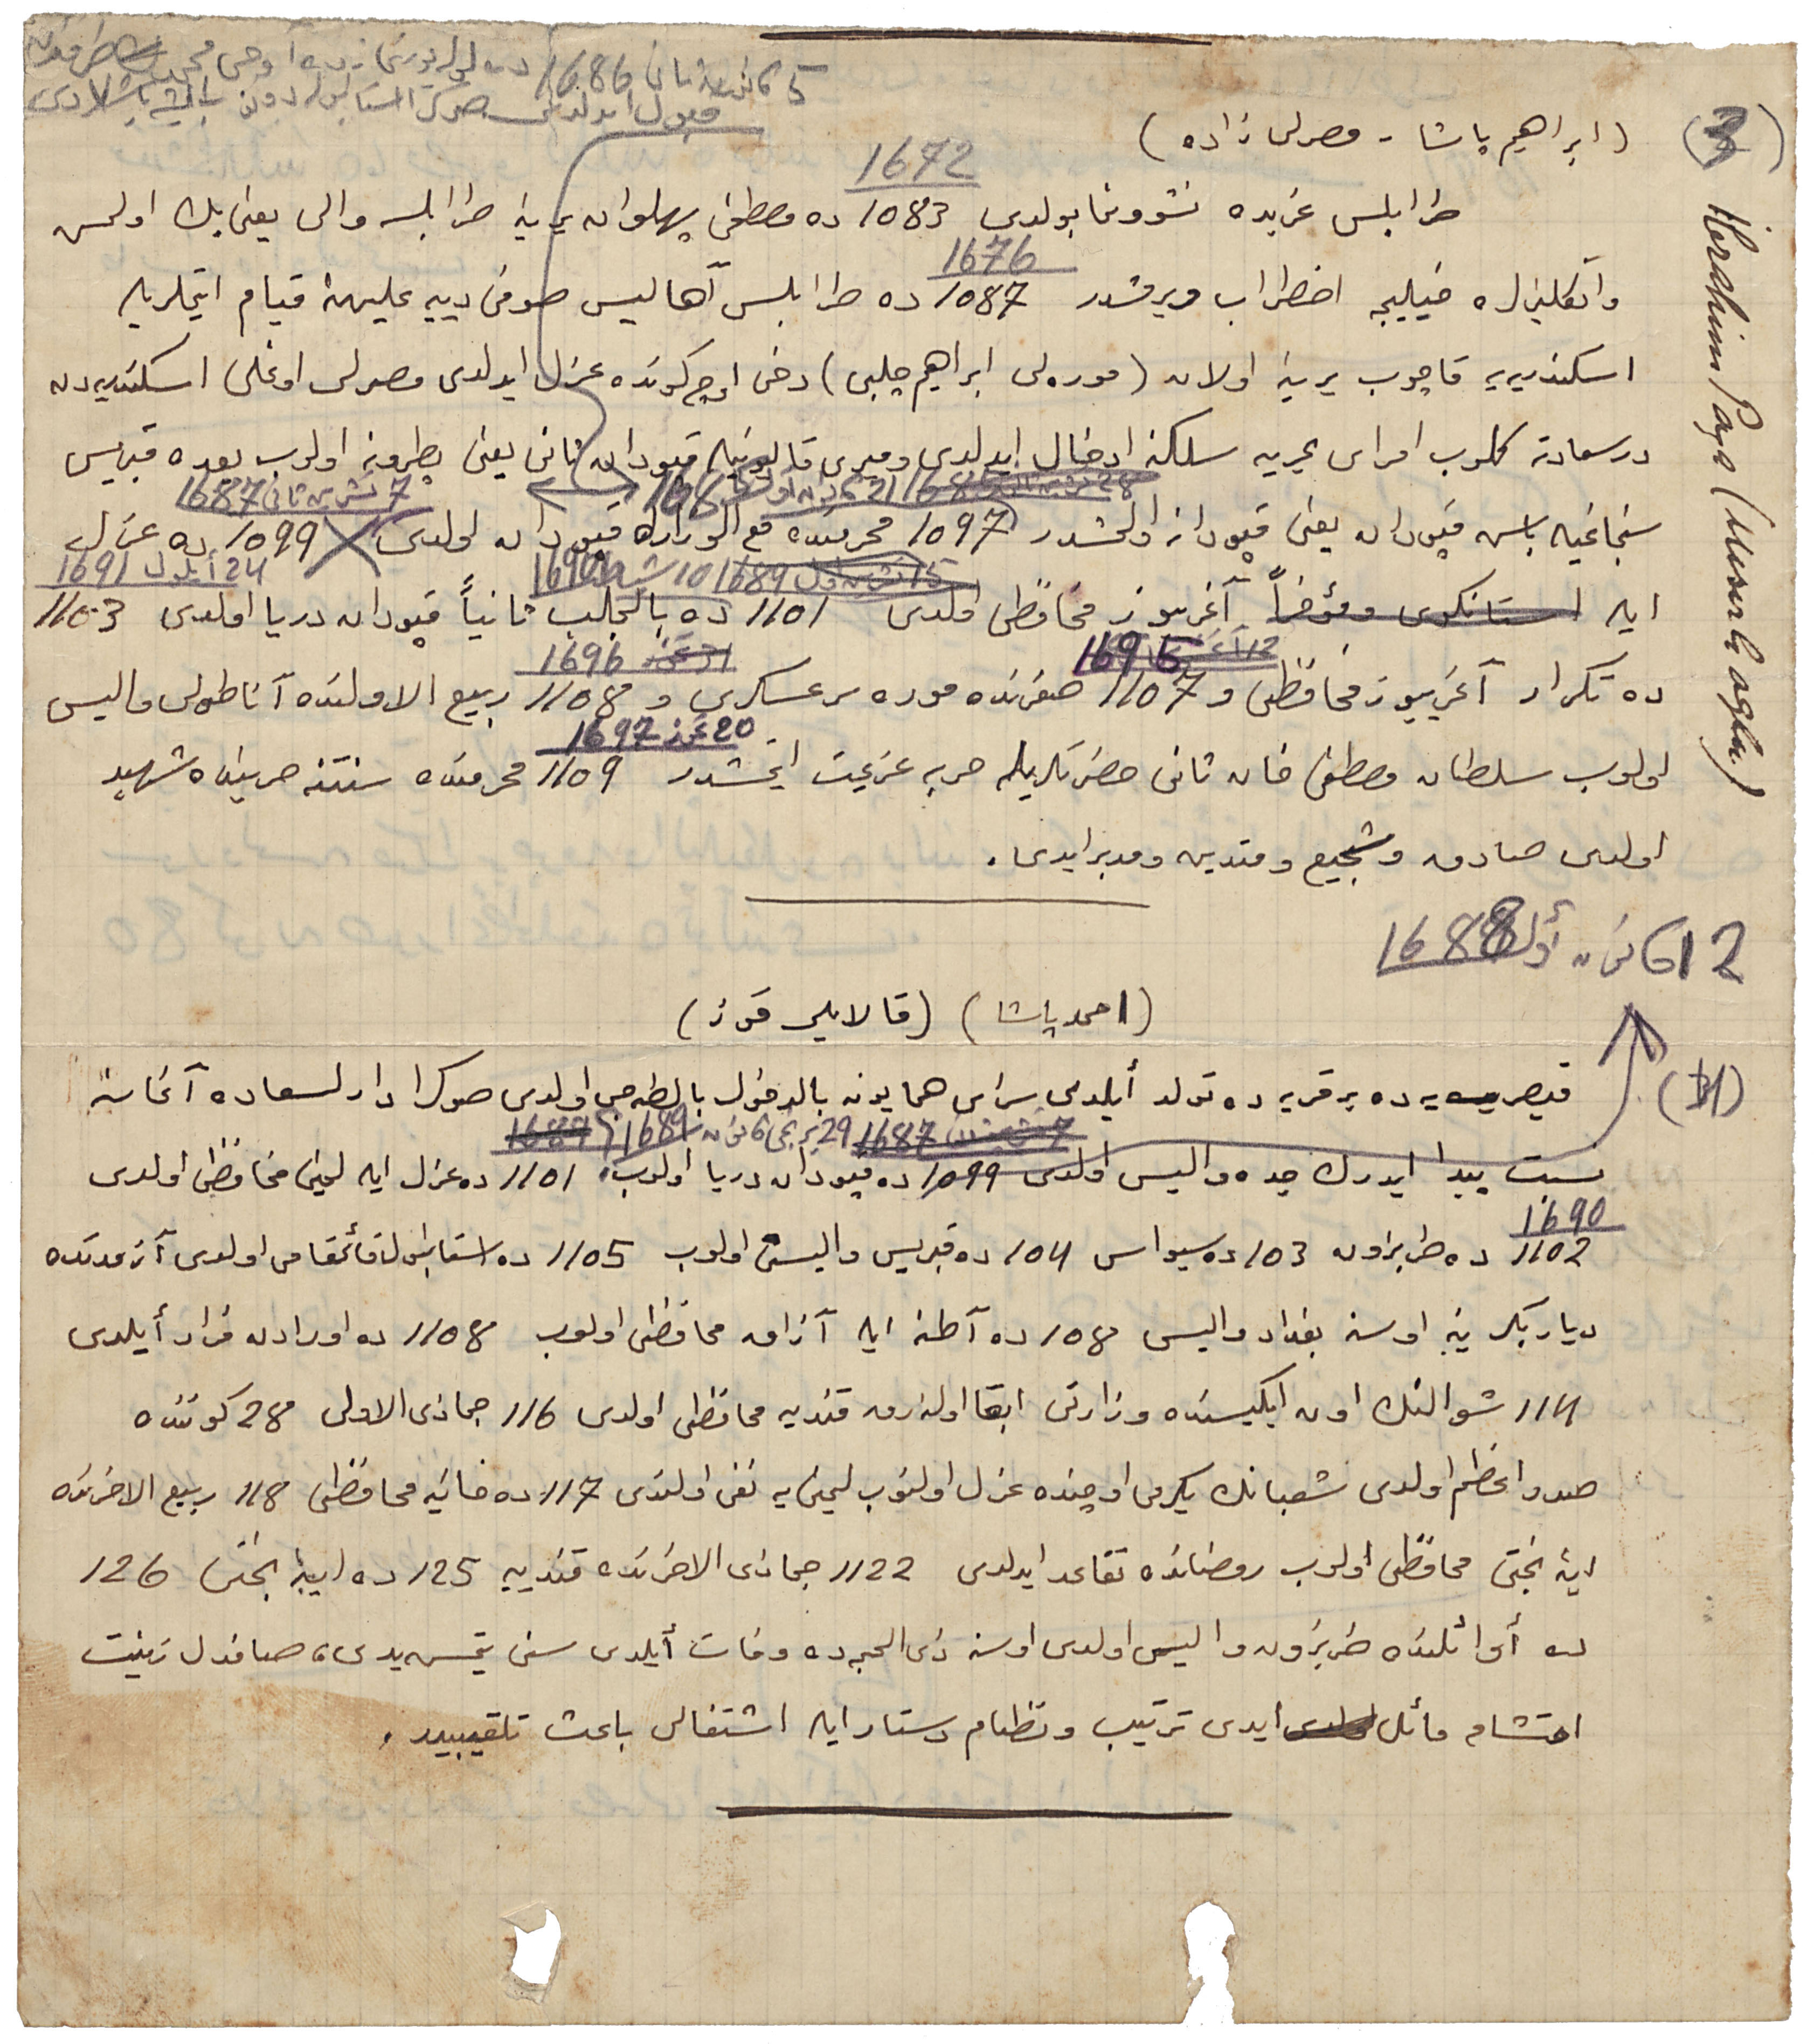 5 كانون ثانى 1686 ده
قبول ايدلدى صوكرا استانبولدن
(3) (ابراهيم پاشا - مصرلى زاده)
Ibrahim Paşa (Mısırlı oğlu)
1672
طرابلس غربده نشوونما بولدى 1083 ده مصطفى پهلوان يرينه طرابلسه والى يعنى بك اولمش
1676
وانكليزلره خيليجه اضطراب ويرمشدر 1087 ده طرابلس آهاليسى صوفى دييه عليهنه قيام ايتملريله
اسكندريه يه قاچوب يرينه اولان (موره لى ابراهيم چلبى) دخى اوچ كونده عزل ايدلدى مصرلى اوغلى اسكندريه دن
درسعادته كلوب امراى بحريه سلكنه ادخال ايدلدى وميرى قاليونيله قپودان ثانى يعنى پطرونه اولوب بعده قبريس
28 تشرين ثانى 1685 21 كانون اول 1685 7 تشرين ثانى 1687
سنجاغيله باش قپودان يعنى قپودانه اولمشدر 1097 محرمنده مع الوزاره قپودان اولدى 1099 ده عزل
15 تشرين اول 1689 10 شباط 1690 24 أيلول 1691
ايله استانكوى ومؤخراً آغريبوز محافظى اولدى 1101 ده بالجلب ثانياً قپودان دريا اولدى 1103
12 آغستوس 1695 1696
ده تكرار آغريبوز محافظى و 1107 صفرنده موره سرعسكرى و 1108 ربيع الاولنده آناطولى واليسى
20 تموز 1697
اولوب سلطان مصطفى خان ثانى حضرتلريله حربه عزيمت ايتمشدر 1109 محرمنده سنتنه حربنده شهيد
اولدى صادق وشجيع ومتدين ومدبر ايدى.
12 كانون أول 1688
(احمد پاشا) (قالايلى قوز)
(4) قيصريه يه ده بر قريه ده تولد أيلدى سراى همايونه بالدخول بالطه جى اولدى صوكرا دارالسعاده آغاسنه
7 تشرين ثانى 1687 29 برنجى كانون 1689 1689
نسبت پيدا ايدرك جده واليسى اولدى 1099 ده قپودان دريا اولوب، 1101 ده عزل ايله ليمنى محافظى اولدى
1690
1102 ده طربزون 103 ده سيواس 104 ده قبريس واليسى اولوب 1105 ده استانبول قائمقامى اولدى آز مدتده
دياربكر ينه او سنه بغداد واليسى 108 ده آطنه ايله آزاق محافظى اولوب 1108 ده اورادن فرار أيلدى
114 شوالنك اون ايكيسنده وزارتى ابقا اولنه رق قنديه محافظى اولدى 116 جماذى الاولى 28 كوننده
صدر اعظم اولدى شعبانك يكرمى اوچنده عزل اولنوب ليمنى يه نفى اولندى 117 ده خانيه محافظى 118 ربيع الاخرنده
اينه بختى محافظى اولوب رمضاننده تقاعد ايدلدى 1122 جماذى الاخرنده قنديه 125 ده اينه بختى 126
ده أوائلنده طربزون واليسى اولدى او سنه ذى الحجه ده وفات أيلدى سنى يتمش يدى، صافدل زينت
احتشامه مائل ايدى ترتيب ونظام دستار ايله اشتغالى باعث تلقيبيدر.